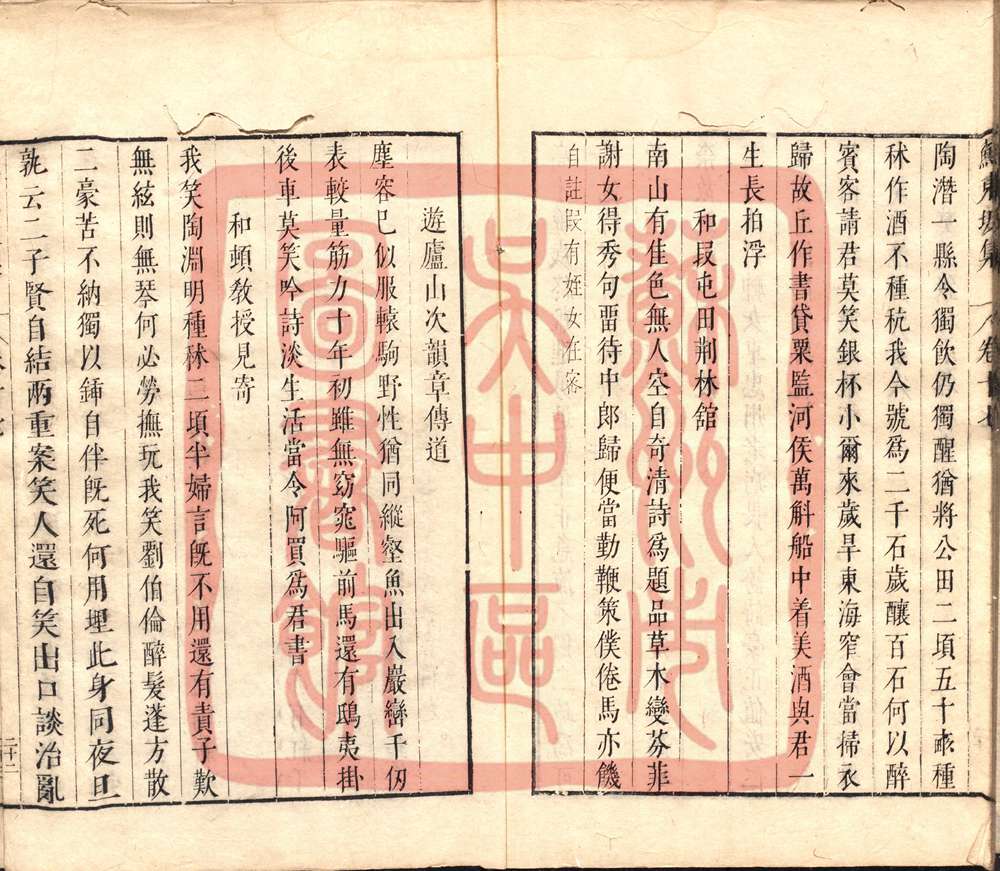 陶潛一縣令獨飲仍獨醒猶將公田二頃五十畝種
秫作酒不種秔我今號爲二千石歲釀百石何以醉
賓客請君莫笑銀杯小爾來歲旱東海窄會當掃衣
歸故丘作書貸粟監河侯萬斛船中着美酒與君一
生長拍浮
和段屯田荆林舘
南山有佳色無人空自奇清詩爲題品草木變芬菲
謝女得秀句畱待中郎歸便當勤鞭策僕倦馬亦饑
自註段有姪女在客
遊廬山次韻章傳道
塵容已似服轅駒野性猶同縱壑魚出入巖巒千仞
表較量筋力十年初雖無窈窕驅前馬還有鴟夷掛
後車莫笑吟詩淡生活當令阿買爲君書
和頓敎授見寄
我笑陶淵明種秫二頃半婦言旣不用還有責子歎
無絃則無琴何必勞撫玩我笑劉伯倫醉髮蓬方散
二豪苦不納獨以鍤自伴旣死何用埋此身同夜旦
孰云二子賢自結兩重案笑人還自笑出口談治亂
二十二
蘇州市
吳中區
圖書館